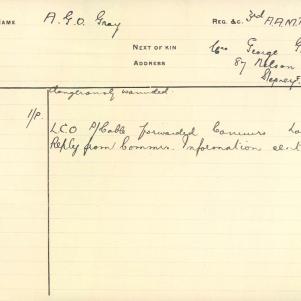 NAME A. G. O. Gray REG. &C. 3rd A.A.M.
NEXT OF KIN George G.
ADDRESS 87 Nelson
Stepney
dangerously wounded.
1/P. LCO P/Cable forwarded Commrs
Reply from Commrs. Information